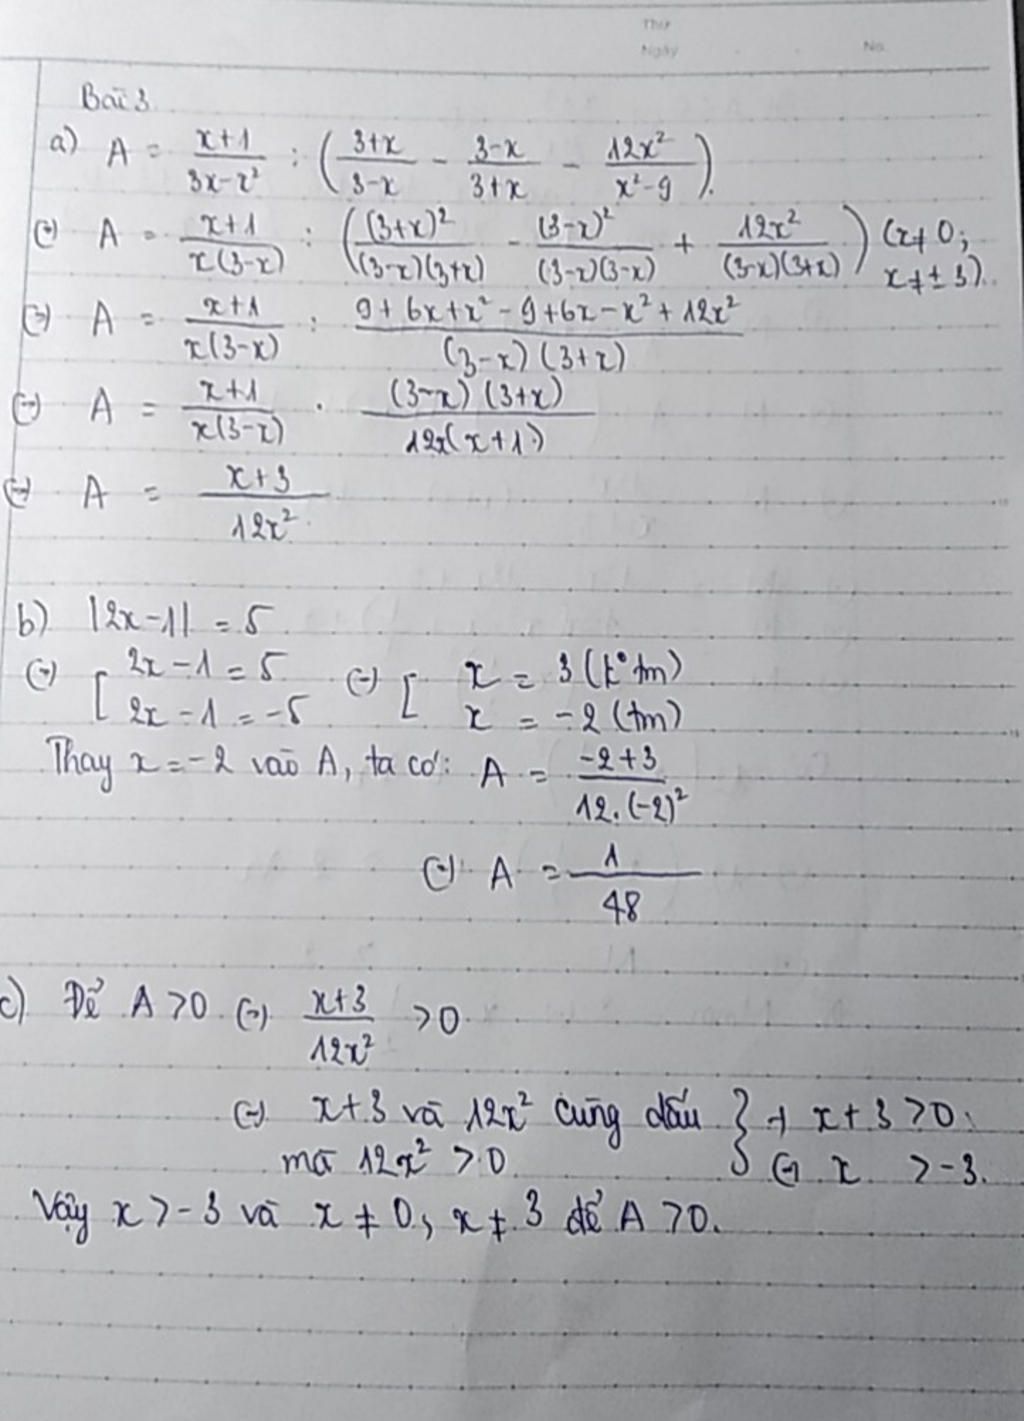 Thứ
Ngày No.
Bài 3
a) A = (x+1)/(3x-x²) : ((3+x)/(3-x) - (3-x)/(3+x) - 12x²/(x²-9)).
(=) A = (x+1)/(x(3-x)) : ((3+x)²/((3-x)(3+x)) - (3-x)²/((3-x)(3-x)) + 12x²/((3-x)(3+x))) (x≠0; x≠±3).
(=) A = (x+1)/(x(3-x)) : (9+6x+x²-9+6x-x²+12x²)/((3-x)(3+x))
(=) A = (x+1)/(x(3-x)) . ((3-x)(3+x))/(12x(x+1))
(=) A = (x+3)/(12x²)
b) |2x-1| = 5
(=) [ 2x-1=5 (=) [ x = 3 (k° tm)
2x-1=-5 x = -2 (tm)
Thay x=-2 vào A, ta có: A = (-2+3)/(12.(-2)²)
(=) A = 1/48
c) Để A>0 (=) (x+3)/(12x²) >0
(=) x+3 và 12x² cùng dấu } → x+3>0
mà 12x²>0 (=) x >-3.
Vậy x>-3 và x≠0, x≠3 để A>0.